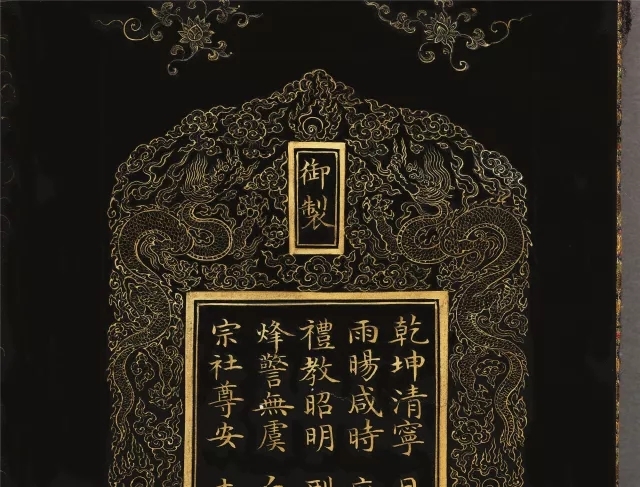 御製
乾坤清寧
雨暘咸時
禮教昭明
烽警無虞
宗社尊安